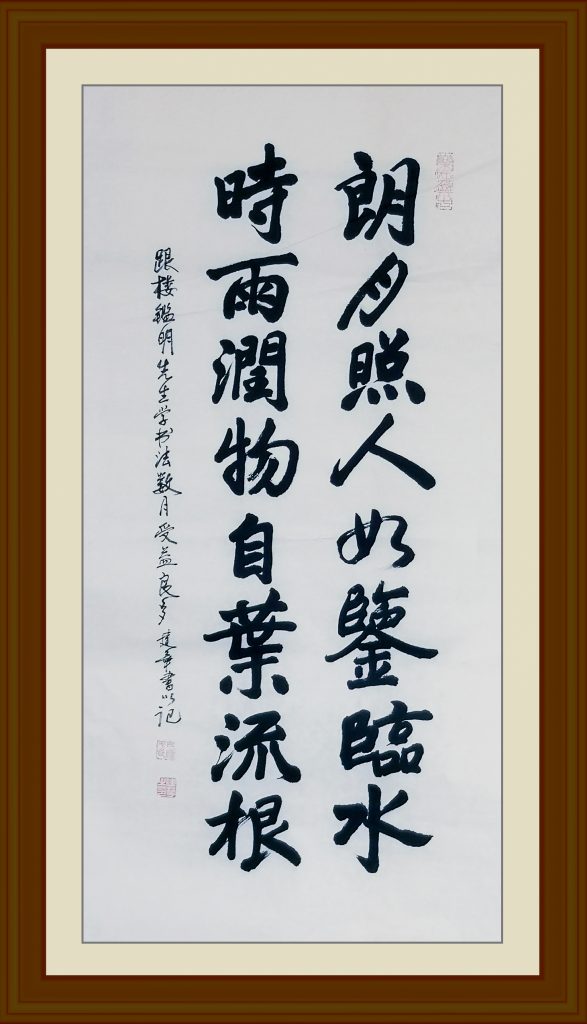 朗月照人如鑒臨水
時雨潤物自葉流根
跟楼鑑明先生学书法数月受益良多建華書以记